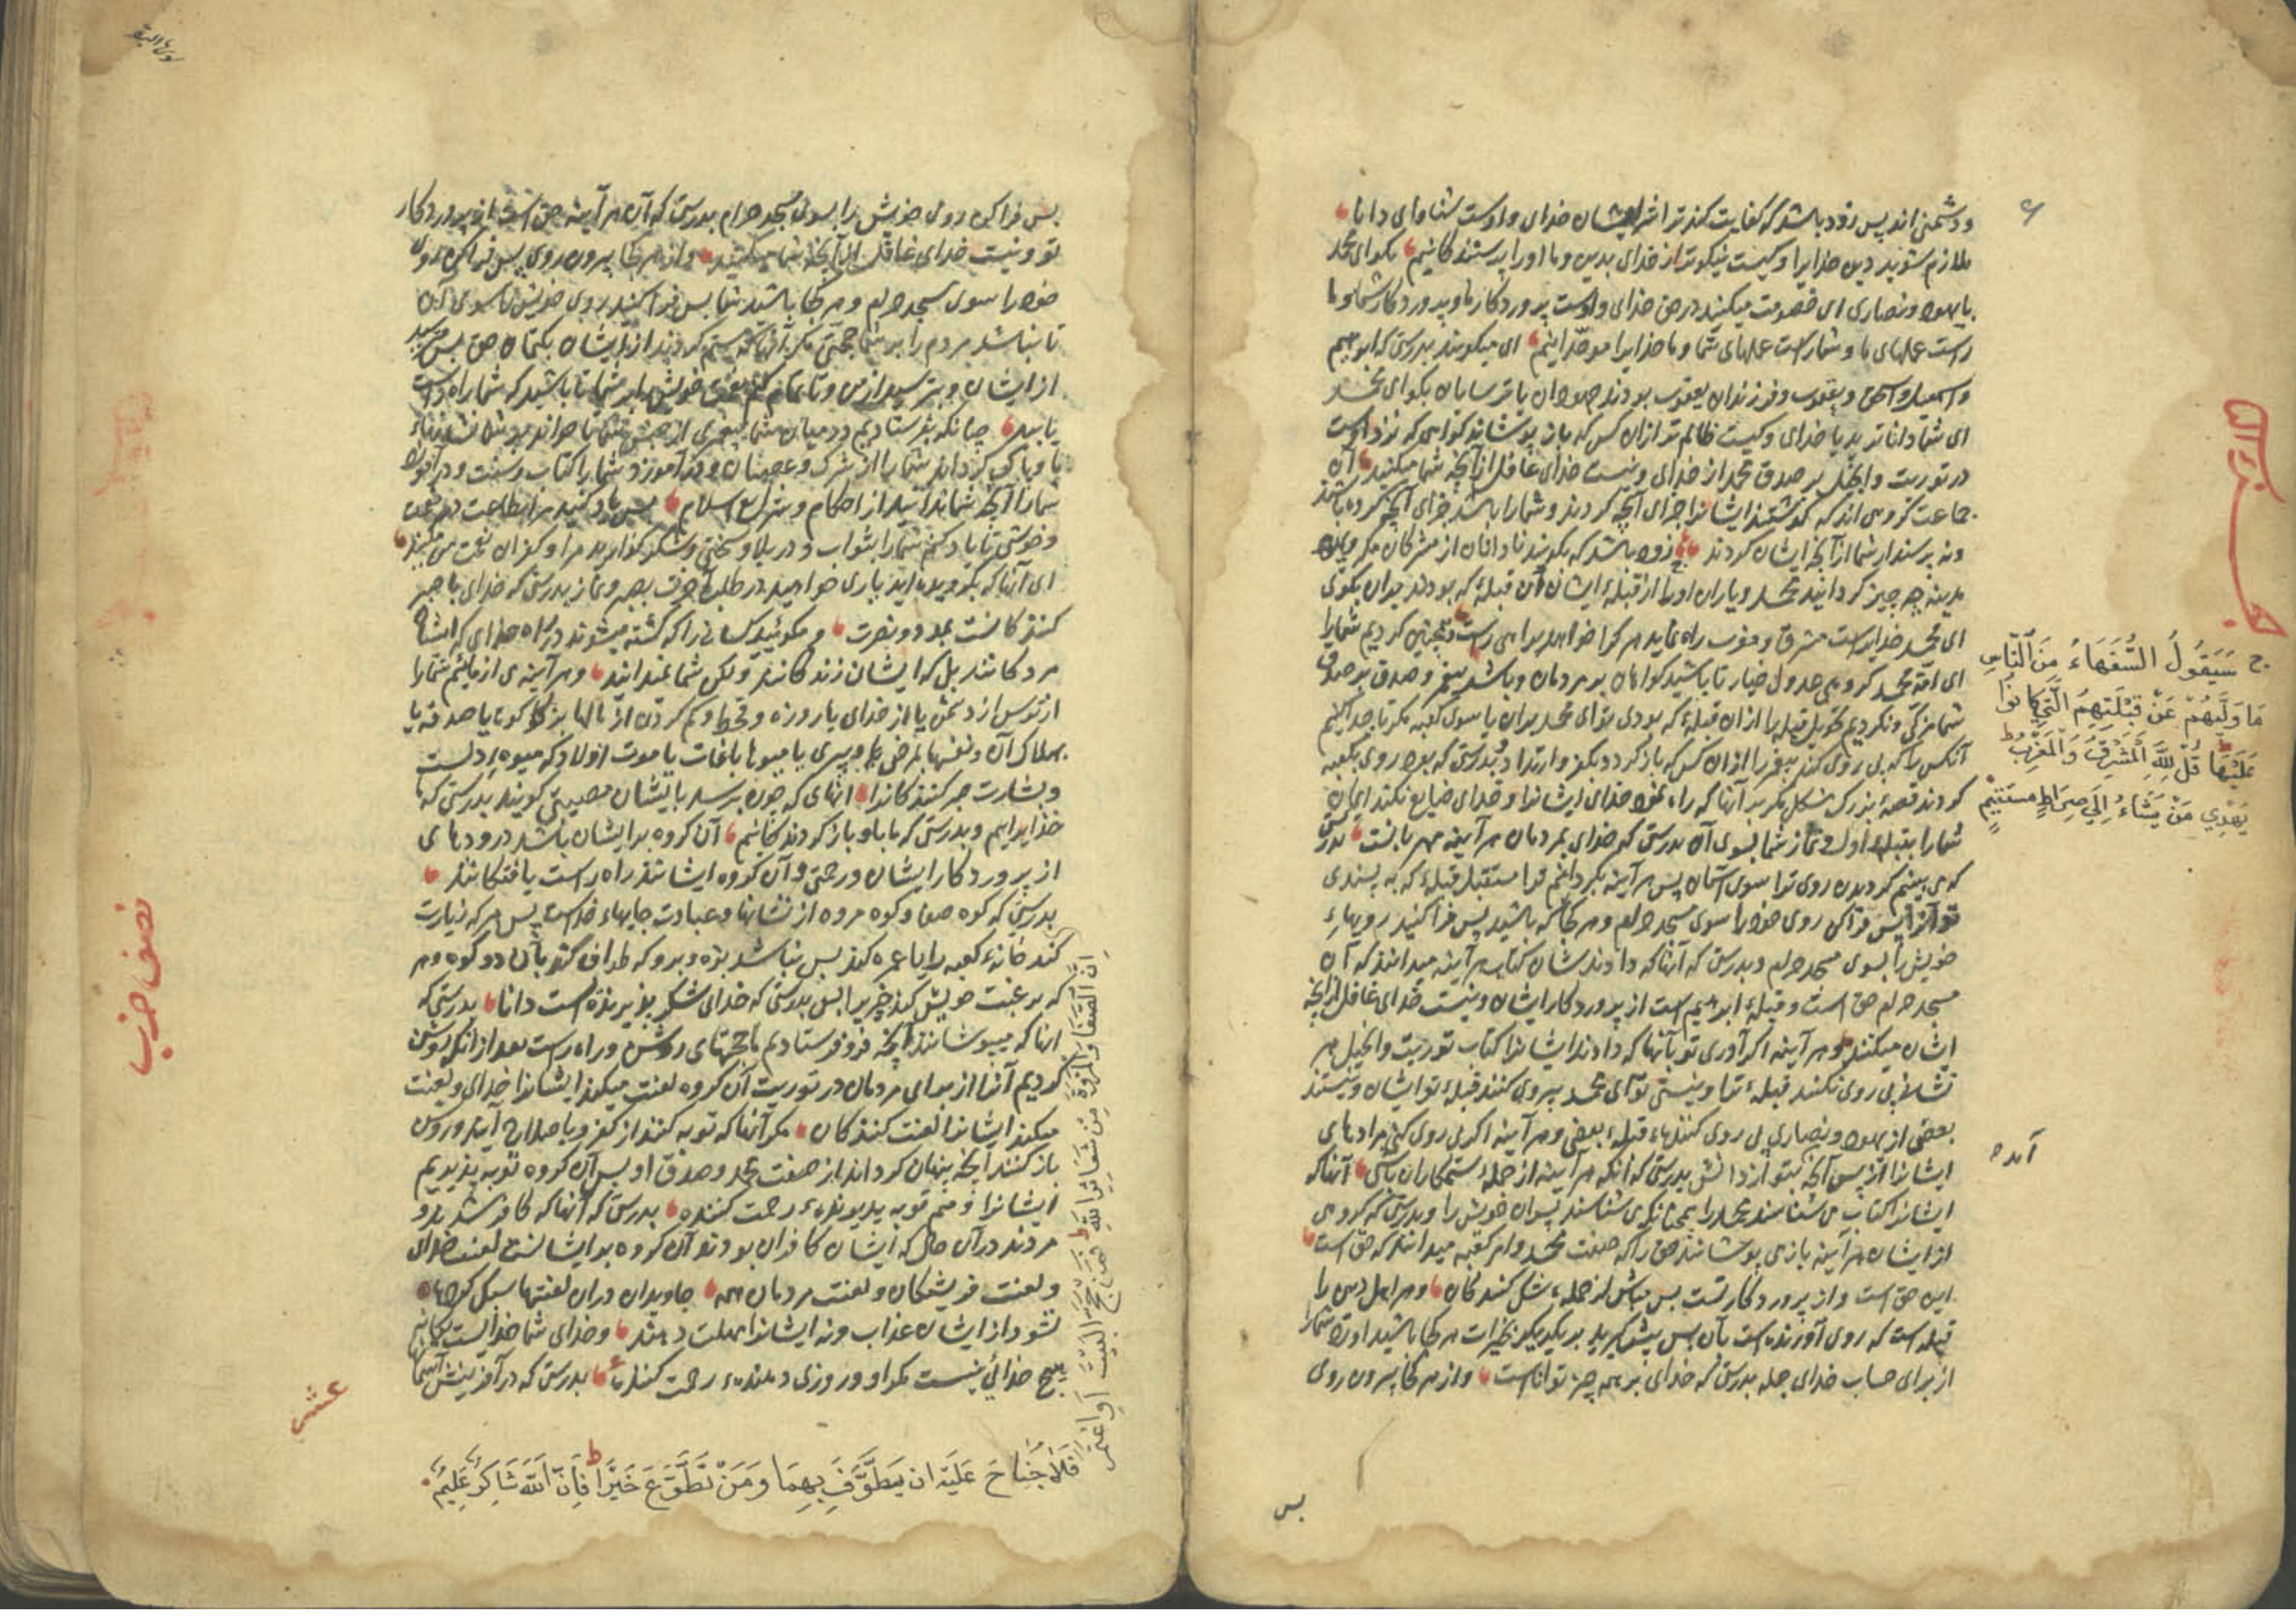 ودشمنی‌اند پس زود باشد که کفایت کند ترا شر ایشان خدای واوست شنوای دانا
ملازم شوید دین خدایرا وکیست نیکوتر از خدای بدین وما اورا پرستندکانیم بکو ای محمد
یا یهود ونصاری ای خصومت میکنید در حق خدای واوست پروردکار ما وپروردکار شما وما
راست عملهای ما وشما راست عملهای شما وما خدایرا موحدانیم ای میکویند بدرستی که ابرهیم
واسمعیل واسحق ویعقوب وفرزندان یعقوب بودند جهودان یا ترسایان بکو ای محمد
ای شما داناترید یا خدای وکیست ظالم‌تر ازان کس که باز پوشاند کواهی که نزد اوست
در توریت وانجیل بر صدق محمد از خدای ونیست خدای غافل از آنچه شما میکنید آن
جماعت کروهی‌اند که کذشتند ایشانرا جزای آنچه کردند وشما را باشد جزای آنچه کرده باشید
ونه پرسند از شما از آنچه ایشان کردند زود باشد که بکویند نادانان از مشرکان مکه ویهود
مدینه چه چیز کردانید محمد ویاران اورا از قبلهٔ ایشان آن قبلهٔ که بودند بران بکوی
ای محمد خدایراست مشرق ومغرب راه نماید هر کرا خواهد براهی راست وهمچنین کردیم شما را
ای امة محمد کروهی عدول خیار تا باشید کواهان بر مردمان وباشد پیغمبر وصدق بر صدق
شما مزکی ونکردیم تحویل قبله را ازان قبلهٔ که بودی تو ای محمد بران یا سوی کعبه مکر تا جدا کنیم
آنکس را که پی روی کند پیغمبر را ازان کس که باز کردد بکفر وارتداد وبدرستی که بود روی بکعبه
کردند قصهٔ بزرک مشکل مکر بر آنها که راه نمود خدای ایشانرا وخدای ضایع نکند ایمان
شما را بقبلهٔ اول ونماز شما بسوی آن بدرستی که خدای بمردمان هر آینه مهربانست بدرستی
که می بینیم کردیدن روی ترا سوی آسمان پس هر آینه بکردانیم ترا مستقبل قبلهٔ که به پسندی
تو آنرا پس فرا کن روی خود را سوی مسجد حرام وهر کجا که باشید پس فرا کنید رویهاء
خویش را بسوی مسجد حرام وبدرستی که آنها که دادندشان کتاب هر آینه میدانند که آن
مسجد حرام حق است وقبلهٔ ابرهیم است از پروردکار ایشان ونیست خدای غافل از آنچه
ایشان میکنند وهر آینه اکر آوری تو بآنها که دادند ایشانرا کتاب توریت وانجیل هر
نشانی پی روی نکنند قبلهٔ ترا ونیستی تو ای محمد پیروی کننده قبلهٔ تو ایشان ونیستند
بعضی از یهود ونصاری پی روی کننده قبلهٔ بعضی وهر آینه اکر پی روی کنی مرادهای
ایشانرا از پس آنچه بتو آمد از دانش بدرستی که انکه هر آینه از جملهٔ ستمکاران باشی آنها که
ایشانرا کتاب می شناسند محمد را همچنانکه می شناسند پسران خویش را وبدرستی که کروهی
از ایشان هر آینه باز می پوشانند حق را که صفت محمد وامر کعبه میدانند که حق است
این حق است واز پروردکار تست پس مباش از جملهٔ شک کنندکان وهر اهل دین را
قبله است که روی آورنده است بآن پس پیشی کیرید بر یکدیکر بخیرات هر کجا باشید اورد شما را
از برای حساب خدای جمله بدرستی که خدای بر همه چیز تواناست واز هر کجا بیرون روی
ج سَيَقُولُ السُّفَهَاءُ مِنَ النَّاسِ
مَا وَلَّيهُمْ عَنْ قِبْلَتِهِمُ الَّتِي كَانُوا
عَلَيْهَا قُلْ لِلَّهِ الْمَشْرِقُ وَالْمَغْرِبُ ط
يَهْدِي مَنْ يَشَاءُ إِلَى صِرَاطٍ مُسْتَقِيمٍ
پس
پس فرا کن روی خویش را بسوی مسجد حرام بدرستی که آن هر آینه حق است از پروردکار
تو ونیست خدای غافل از آنچه شما میکنید واز هر کجا بیرون روی پس فرا کن روی
خود را سوی مسجد حرام وهر کجا باشید شما پس فرا کنید روی خویش را سوی آن
تا نباشد مردم را بر شما حجتی مکر آنها که ستم کردند از ایشان بکتمان حق پس مترسید
از ایشان وبترسید از من وتا تمام کنم نعمت خویش را بر شما وتا باشید که شما راه راست
یابید چنانکه بفرستادیم در میان شما پیغمبری از جنس شما تا خواند بر شما نشانهاء
ما وپاک کرداند شما را از شرک وعصیان ودر آموزد شما را کتاب وسنت ودر آموزد
شما را آنچه شما ندانید از احکام وشرایع اسلام پس یاد کنید مرا بطاعت در نعمت
وخوشی تا یاد کنم شما را بثواب ودر بلا وسختی وشکر کذارید مرا وکفران نعمت من مکنید
ای آنها که بکرویده‌اید یاری خواهید در طلب آخرت بصبر ونماز بدرستی که خدای با صبر
کنندکانست بمدد ونصرت ومکوئید کسانی را که کشته میشوند در راه خدای که ایشان
مردکانند بل که ایشان زندکانند ولکن شما نمیدانید وهر آینه می ازماییم شما را
از ترس از دشمن یا از خدای یا روزه وقحط وکم کردن از مالها بزکوة یا صدقه یا
بهلاک آن ونفسها بمرض یا وپیری یا میوها بآفات یا موت اولاد که میوه دلست
وبشارت صبر کنندکانرا آنهای که چون برسد بایشان مصیبتی کویند بدرستی که ما
خدایراییم وبدرستی که ما باو باز کردندکانیم آن کروه بر ایشان باشد درودهای
از پروردکار ایشان ورحمتی وآن کروه ایشانند راه راست یافتکانند
بدرستی که کوه صفا وکوه مروه از نشانها وعبادت جایهاء خداست پس هر که زیارت
کند خانهٔ کعبه را یا عمره کند پس نباشد بزه وبرو که طواف کند بآن دو کوه وهر
که برغبت خویش کند خیر را پس بدرستی که خدای شکر پذیرنده است دانا بدرستی که
انها که میپوشانند آنچه فرو فرستادیم ما حجتهای روشن وراه راست بعد از انکه روشن
کردیم آنرا از برای مردمان در توریت آن کروه لعنت میکند ایشانرا خدای ولعنت
میکند ایشانرا لعنت کنندکان مکر آنها که توبه کنند از کفر وباصلاح آیند وروشن
باز کنند آنچه پنهان کرده‌اند از صفت محمد وصدق او پس آن کروه توبه پذیریم
ایشانرا ومنم توبه پذیرندهٔ رحمت کننده بدرستی که آنها که کافر شدند و
مردند در آن حال که ایشان کافران بودند آن کروه بر ایشانست لعنت خدای
ولعنت فریشتکان ولعنت مردمان همه جاویدان دران لعنتها سبک
نشود از ایشان عذاب ونه ایشانرا مهلت دهند وخدای شما خدایست یکانه
هیچ خدائی نیست مکر او وروزی دهندهٔ رحمت کننده بدرستی که در آفرینش آسمانها
إِنَّ الصَّفَا وَالْمَرْوَةَ مِنْ شَعَائِرِ اللَّهِ ط فَمَنْ حَجَّ الْبَيْتَ أَوِ اعْتَمَرَ
فَلَا جُنَاحَ عَلَيْهِ ان يَطَّوَّفَ بِهِمَا وَمَنْ تَطَوَّعَ خَيْرًا ط فَاِنَّ اللَّهَ شَاكِرٌ عَلِيمٌ
نصف حزب
عشر